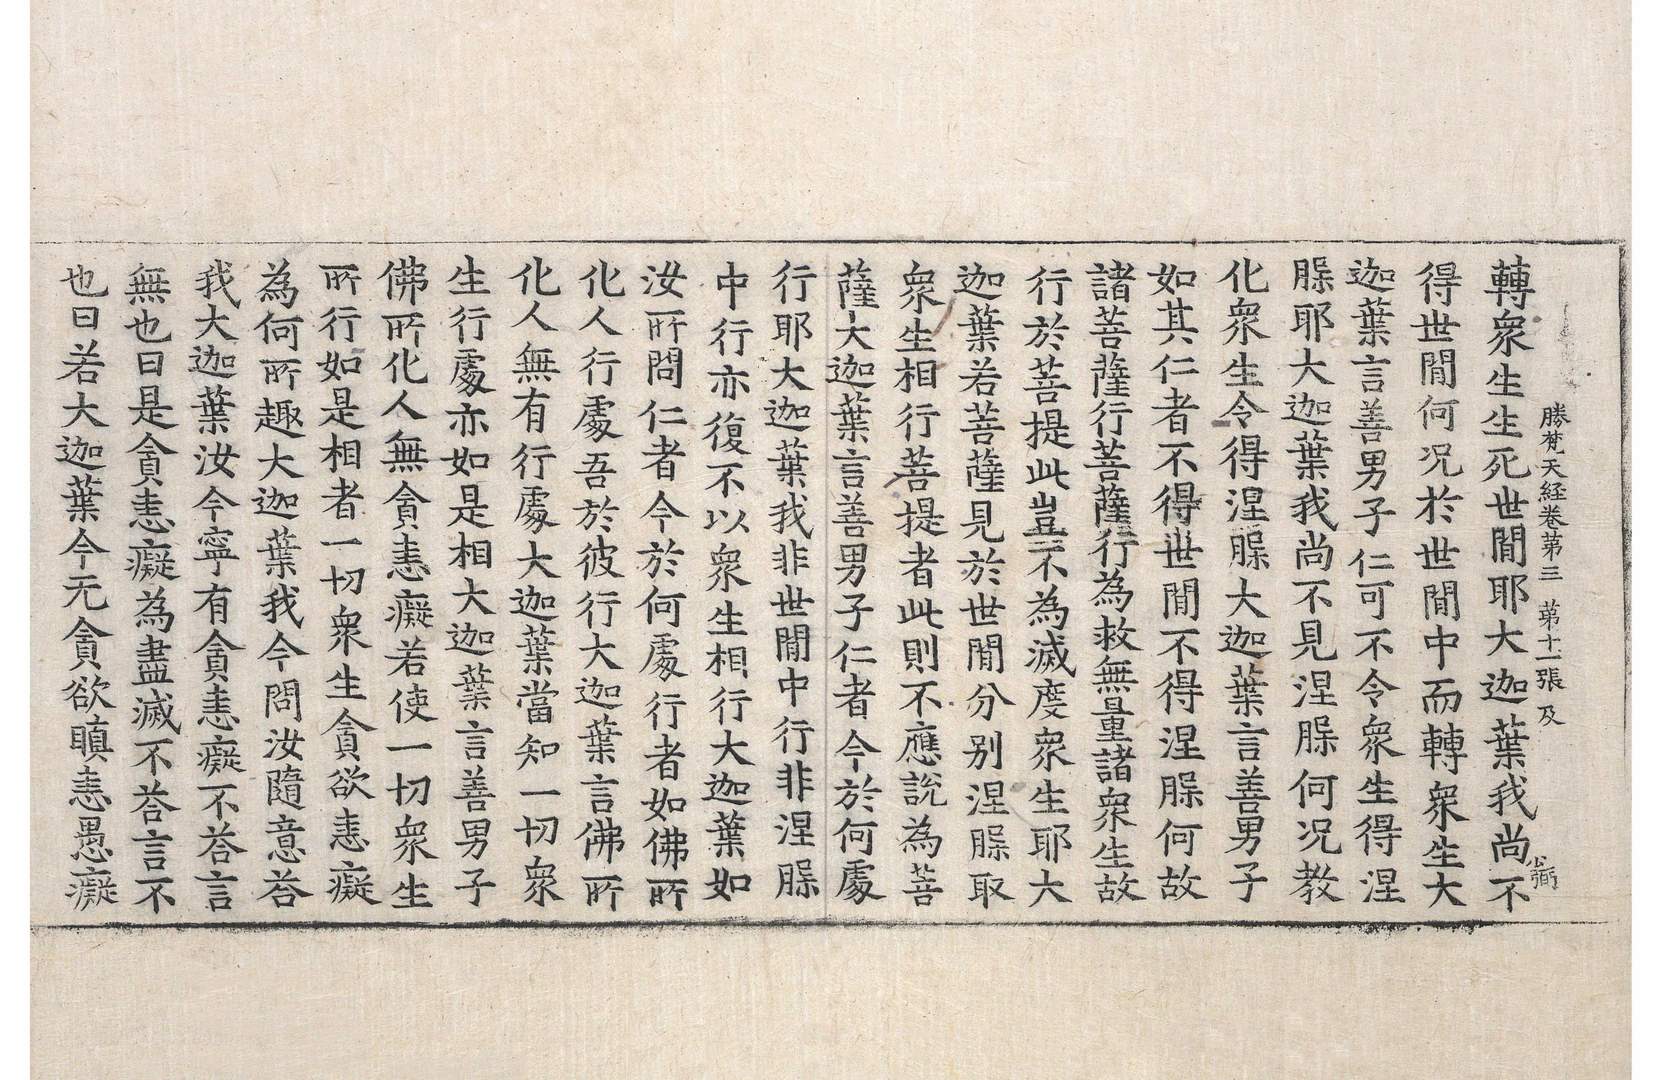 勝梵天經卷第三 第十一張 及
轉衆生生死世閒耶大迦葉我尚不
得世閒何况於世閒中而轉衆生大
迦葉言善男子仁可不令衆生得涅
𦙁耶大迦葉我尚不見涅𦙁何况教
化衆生令得涅𦙁大迦葉言善男子
如其仁者不得世閒不得涅𦙁何故
諸菩薩行菩薩行為救無量諸衆生故
行於菩提此豈不為滅度衆生耶大
迦葉若菩薩見於世閒分别涅𦙁取
衆生相行菩提者此則不應說為菩
薩大迦葉言善男子仁者今於何處
行耶大迦葉我非世閒中行非涅𦙁
中行亦復不以衆生相行大迦葉如
汝所問仁者今於何處行者如佛所
化人行處吾於彼行大迦葉言佛所
化人無有行處大迦葉當知一切衆
生行處亦如是相大迦葉言善男子
佛所化人無貪恚癡若使一切衆生
所行如是相者一切衆生貪欲恚癡
為何所趣大迦葉我今問汝隨意荅
我大迦葉汝今寧有貪恚癡不荅言
無也曰是貪恚癡為盡滅不荅言不
也曰若大迦葉今无貪欲瞋恚愚癡